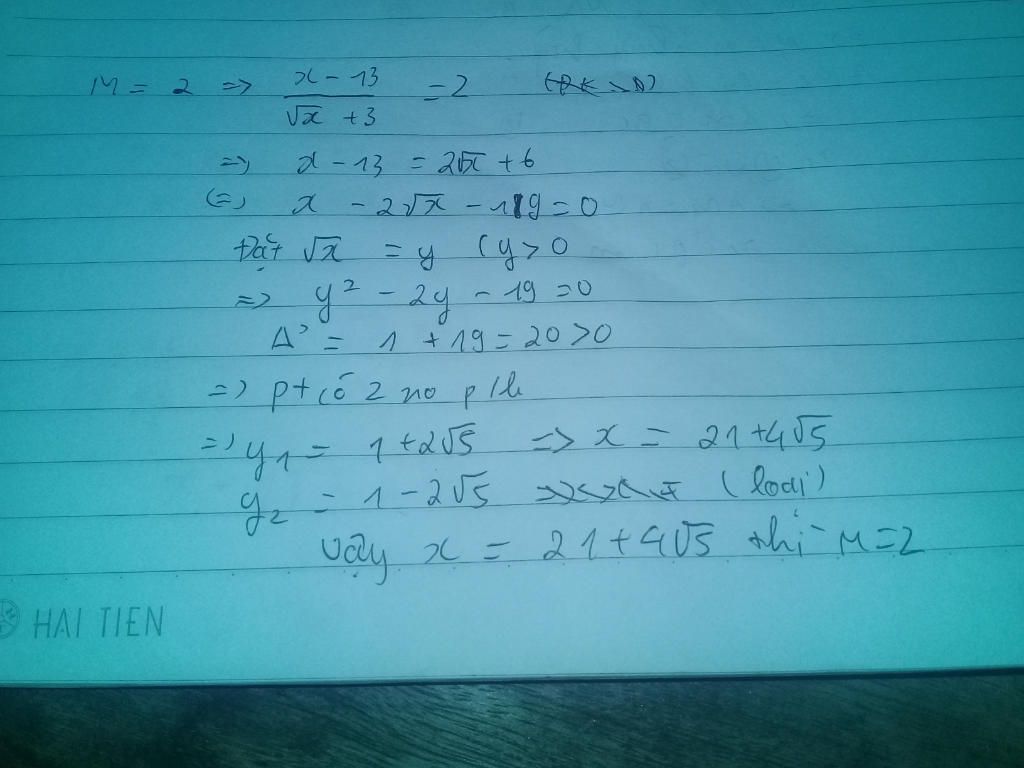 M = 2 => (x - 13)/(√x + 3) = 2
=> x - 13 = 2√x + 6
<=> x - 2√x - 19 = 0
Đặt √x = y (y > 0
=> y² - 2y - 19 = 0
Δ' = 1 + 19 = 20 > 0
=> pt có 2 no p/b
=> y₁ = 1 + 2√5 => x = 21 + 4√5
y₂ = 1 - 2√5 (loại)
Vậy x = 21 + 4√5 thì M = 2
HAI TIEN